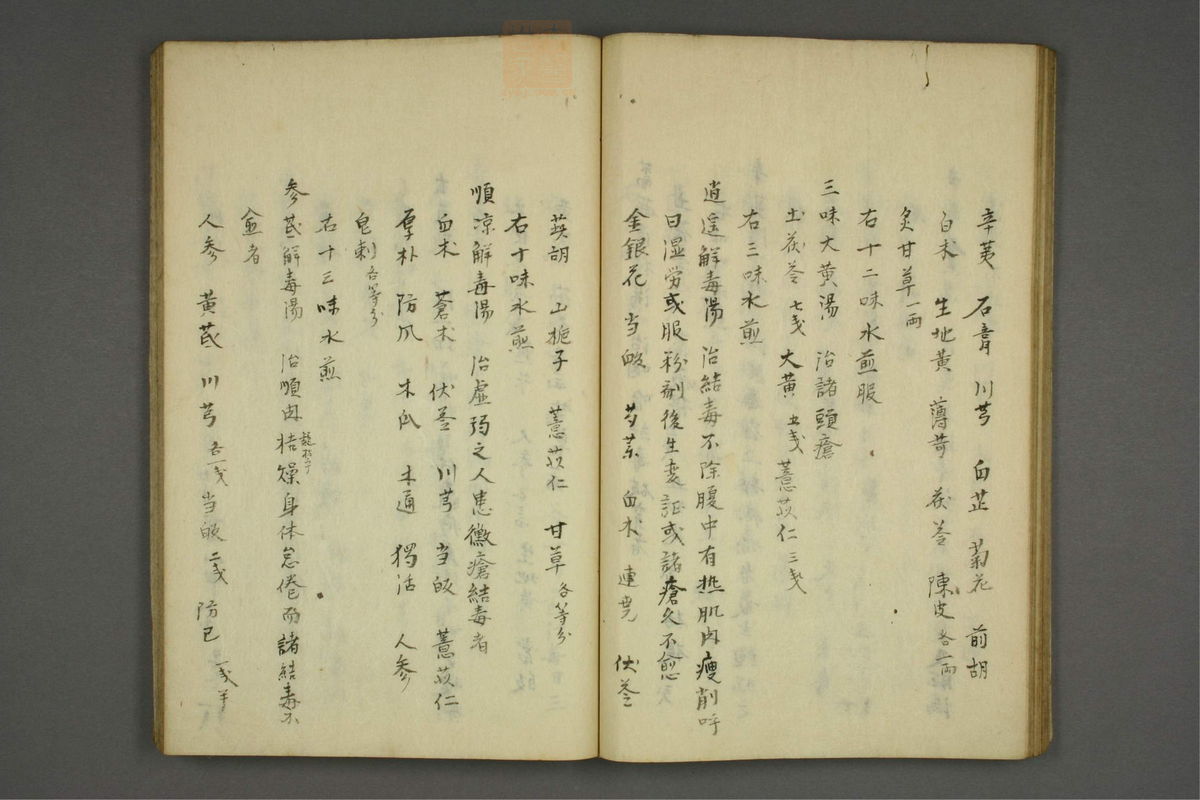 辛荑 石膏 川芎 白芷 菊花 前胡
白朮 生地黄 薄苛 茯苓 陳皮各一両
炙甘草一両
右十二味水煎服
三味大黄湯 治諸頭瘡
土茯苓七戔 大黄五戔 薏苡仁三戔
右三味水煎
逍遥解毒湯 治結毒不除腹中有热肌肉瘦削呼
曰湿労或服粉剤後生変証或諸瘡久不愈
金銀花 当皈 芍薬 白朮 連尭 伏苓
胡 山梔子 薏苡仁 甘草各等分
右十味水煎
順凉解毒湯 治虚弱之人患黴瘡結毒者
白朮 蒼朮 伏苓 川芎 当皈 薏苡仁
厚朴 防风 木瓜 木通 獨活 人参
皂刺各等分
右十三味水煎
参芪解毒湯 治順肉枯燥身体怠倦而諸結毒不
愈者
人参 黄芪 川芎各一戔 当皈二戔 防已一戔半